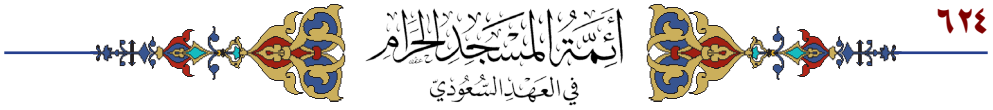 ٦٢٤
أَئِمَّةُ المَسْجِدِ الحَرَامِ
فِي العَهْدِ السُّعُودِيّ